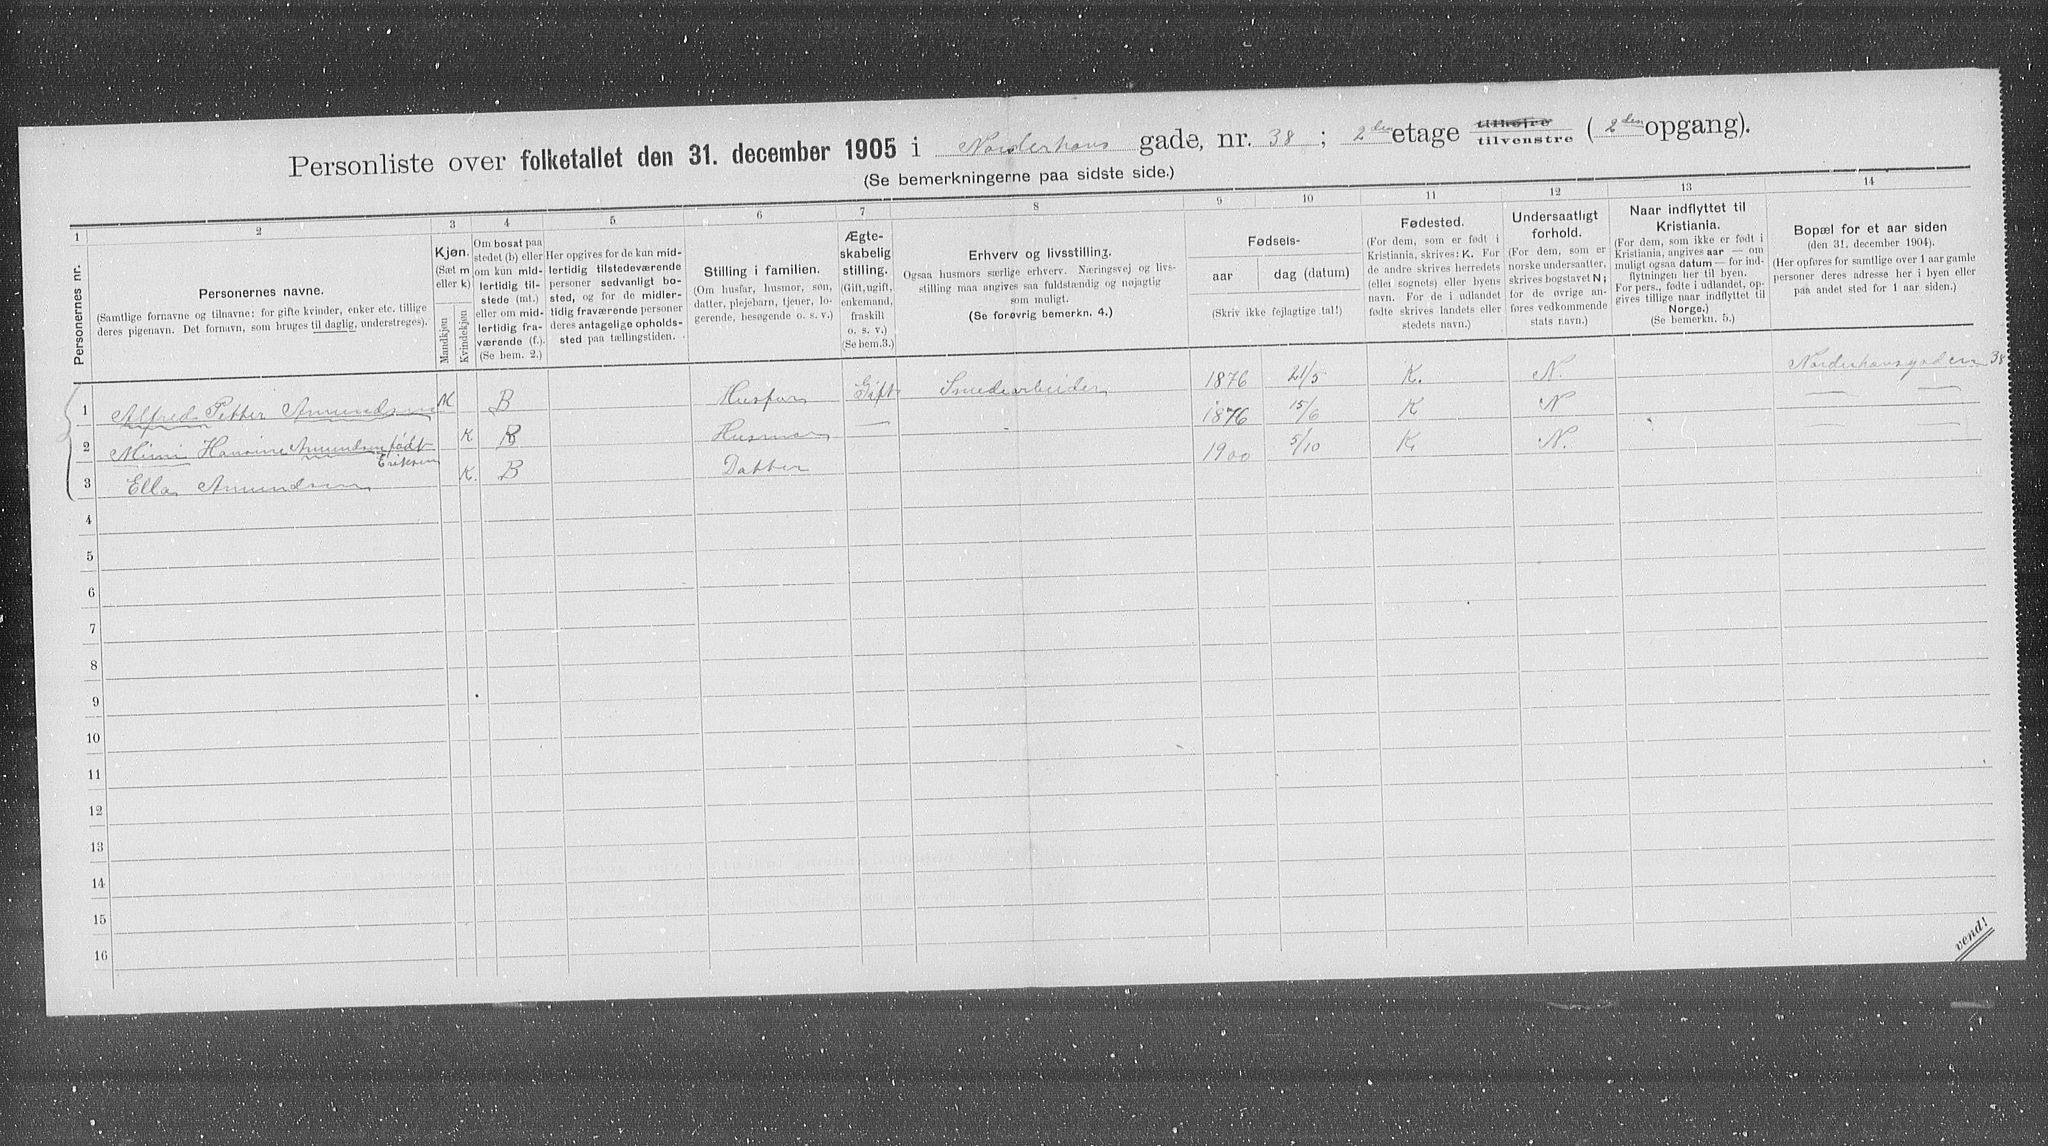 Personliste over folketallet den 31. december 1905 i Norderhovs gade, nr. 38 ; 2den etage tilhøire tilvenstre ( 2den opgang).
(Se bemerkningerne paa sidste side.)
1 2 3 4 5 6 7 8 9 10 11 12 13 14
Personernes nr.
Personernes navne.
(Samtlige fornavne og tilnavne; for gifte kvinder, enker etc. tillige
deres pigenavn. Det fornavn, som bruges til daglig, understreges).
Kjøn.
(Sæt m
eller k)
Mandkjøn
Kvindekjøn
Om bosat paa
stedet (b) eller
om kun mid-
lertidig til-
stede (mt.)
eller om mid-
lertidig fra-
værende (f.).
(Se bem. 2.)
Her opgives for de kun mid-
lertidig tilstedeværende
personer sedvanligt bo-
sted, og for de midler-
tidig fraværende personer
deres antagelige opholds-
sted paa tællingstiden.
Stilling i familien.
(Om husfar, husmor, søn,
datter, plejebarn, tjener, lo-
gerende, besøgende o. s. v.)
Ægte-
skabelig
stilling.
(Gift, ugift,
enkemand,
fraskilt
o. s. v.)
(Se bem.3.)
Erhverv og livsstilling.
Ogsaa husmors særlige erhverv. Næringsvej og livs-
stilling maa angives saa fuldstændig og nøjagtig
som muligt.
(Se forøvrig bemerkn. 4.)
Fødsels-
aar
dag (datum)
(Skriv ikke fejlagtige tal!)
Fødested.
(For dem, som er født i
Kristiania, skrives: K. For
de andre skrives herredets
(ellet sognets) eller byens
navn. For de i udlandet
fødte skrives landets eller
stedets navn.)
Undersaatligt
forhold.
(For dem, som er
norske undersaatter,
skrives bogstavet N;
for de øvrige an-
føres vedkommende
stats navn.)
Naar indflyttet til
Kristiania.
(For dem, som ikke er født i
Kristiania, angives aar — om
muligt ogsaa datum — for ind-
flytningen her til byen.
For pers., fødte i udlandet, op-
gives tillige naar indflyttet til
Norge.)
(Se bemerkn. 5.)
Bopæl for et aar siden
(den 31. december 1904).
(Her opføres for samtlige over 1 aar gamle
personer deres adresse her i byen eller
paa andet sted for 1 aar siden.)
1 Alfred Petter Amundsen M B Husfar Gift Smedearbeider 1876 21/5 K. N. Norderhovsgaden 38
2 Mimi Hansine Amundsen født Eriksen K B Husmor — 1876 15/6 K N — —
3 Ella Amundsen K. B Datter 1900 5/10 K N. — —
4
5
6
7
8
9
10
11
12
13
14
15
16
vend!